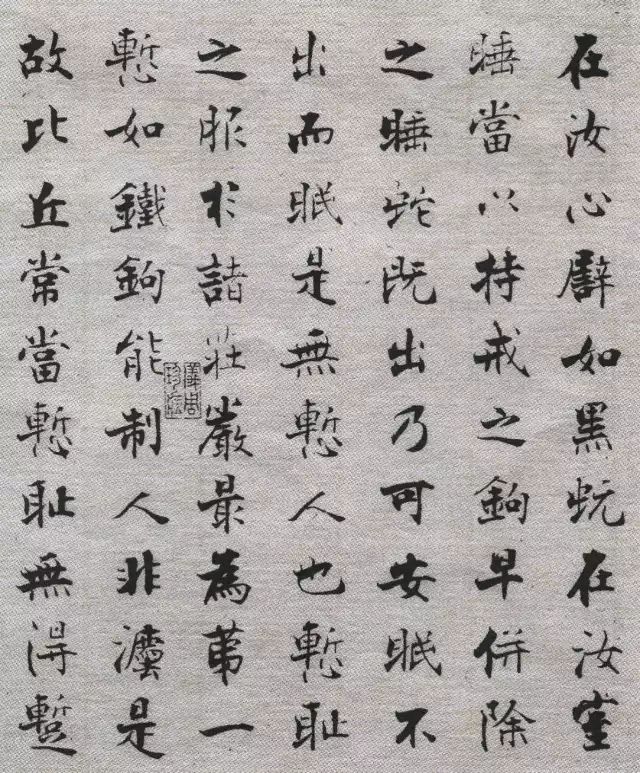 在汝心譬如黑蚖在汝室
睡當以持戒之鉤早併除
之睡蛇既出乃可安眠不
出而眠是無慙人也慙耻
之服於諸莊嚴最為苐一
慙如鐵鉤能制人非灋是
故比丘常當慙耻無得暫
儀周珍藏